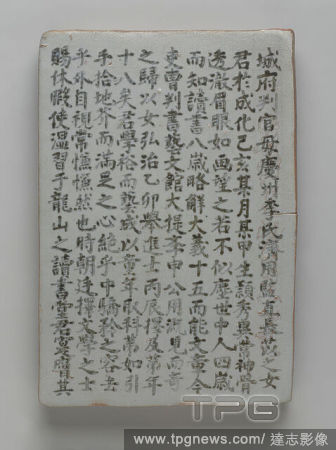 城府判官母慶州李氏濟用監直長苡之女
君於成化己亥某月某甲生頴秀異常神骨
透澈眉眼如畫望之若不似塵世中人四歲
而知讀書八歲略解大義十五而能文章今
吏曹判書藝文館大提學申公用漑見而奇
之歸以女弘治乙卯舉進士丙辰擢及第年
十八矣君學裕而藝成以童年取科第如引
手拾地芥而滿足之心絶乎中驕矜之容去
乎外自視常慊慊然也時朝廷擇文學之士
賜休暇使溫習于龍山之讀書堂君實膺其
TPG
www.tpgnews.com/ 達志影像